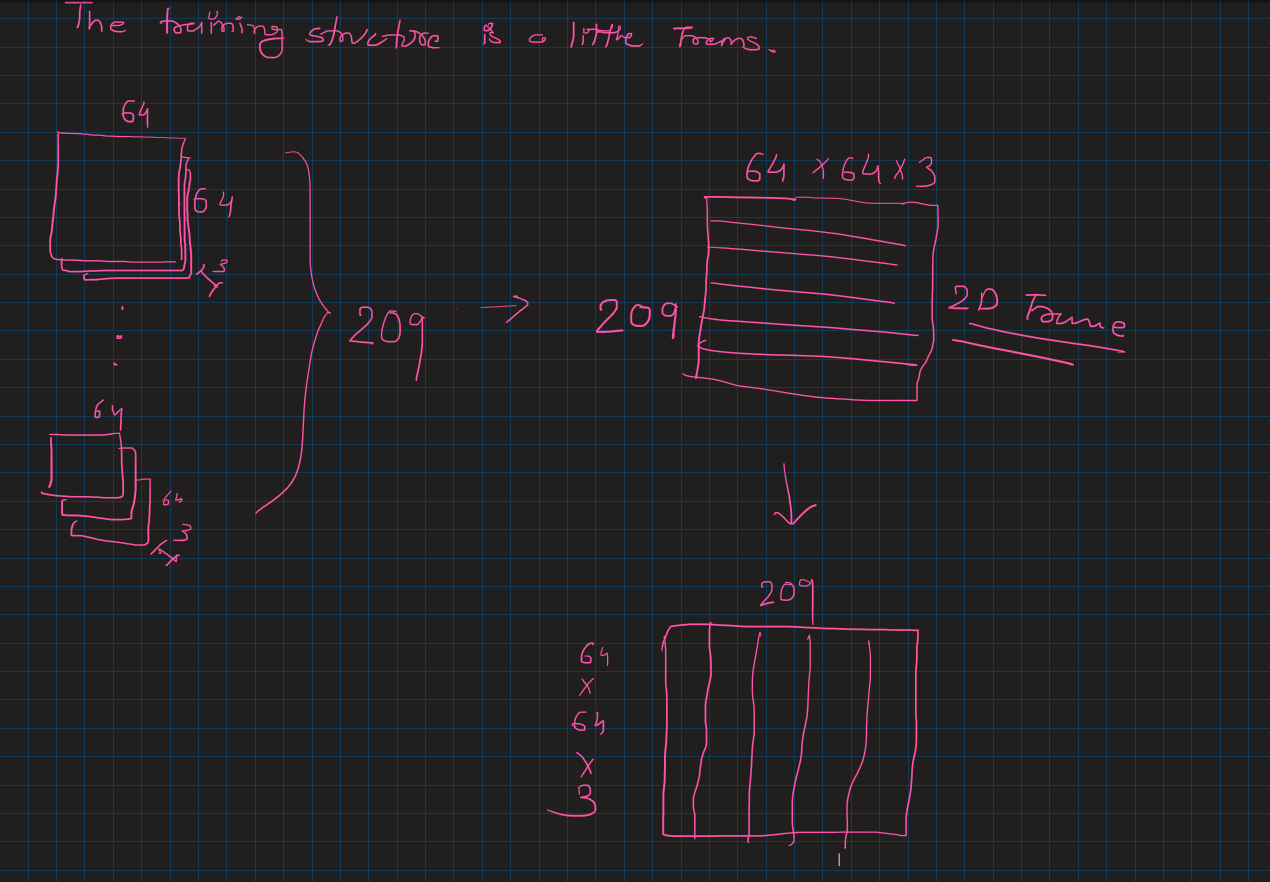 The training structure is a little
64
64
3
64
64
3
209
64 x 64 x 3
209
2D Frame
209
64
x
64
x
3